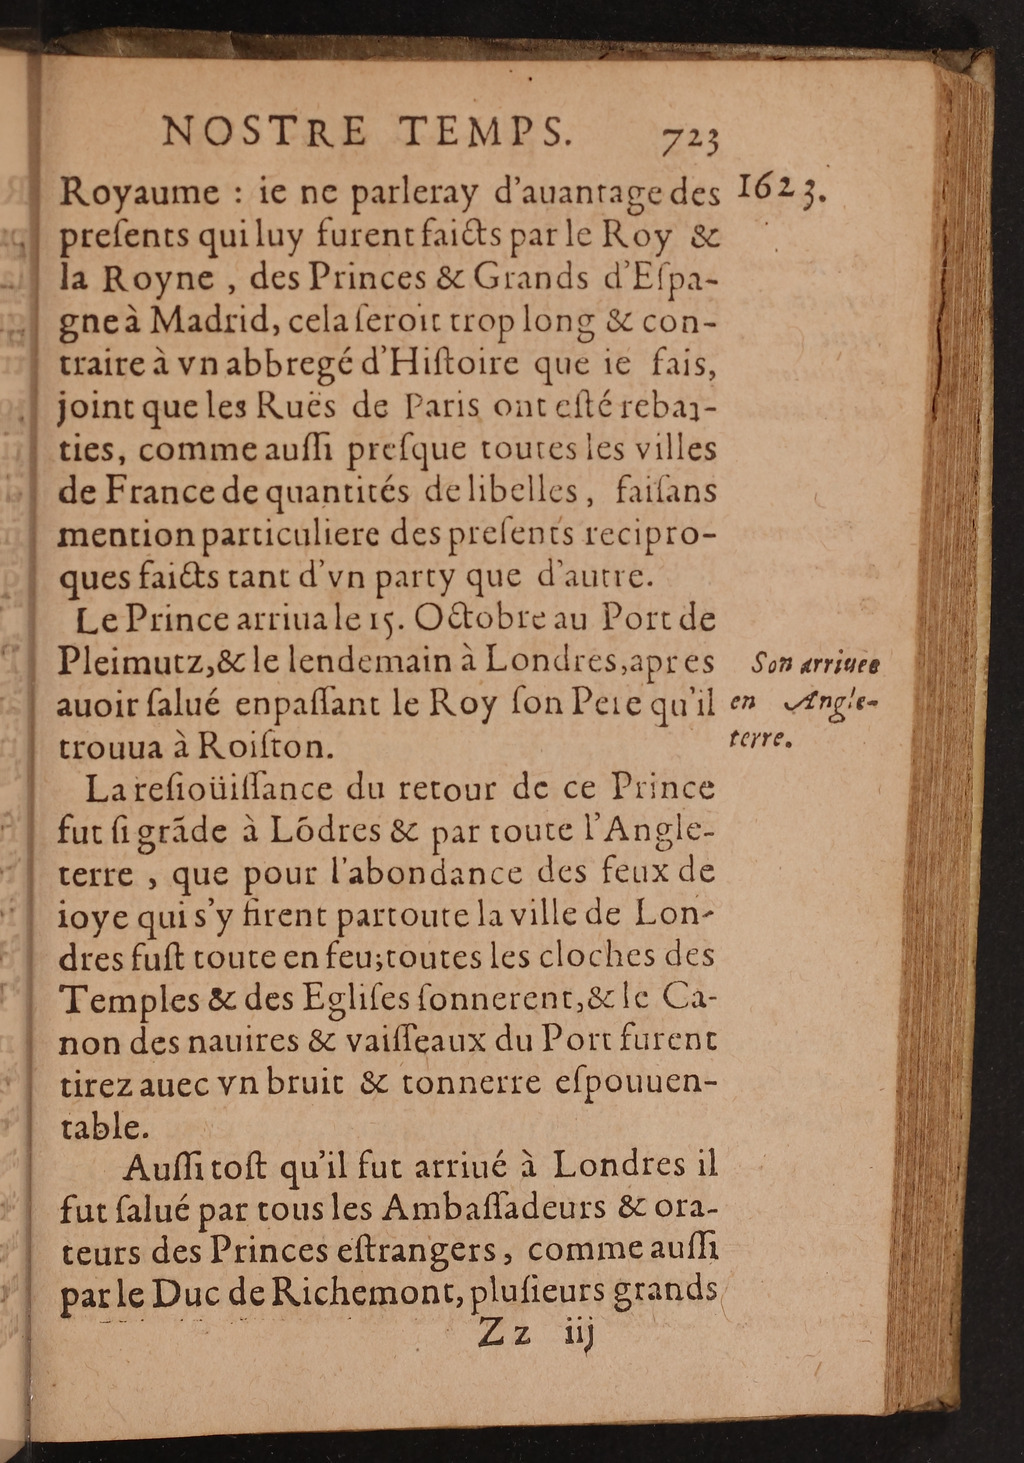 NOSTRE TEMPS. 723
Royaume : ie ne parleray d'auantage des 1623.
preſents qui luy furent faicts par le Roy &
la Royne , des Princes & Grands d'Eſpa-
gne à Madrid, cela ſeroit trop long & con-
traire à vn abbregé d'Hiſtoire que ie fais,
joint que les Ruës de Paris ont eſté rebaj-
ties, comme auſſi preſque toutes les villes
de France de quantités de libelles, faiſans
mention particuliere des preſents recipro-
ques faicts tant d'vn party que d'autre.
Le Prince arriua le 15. Octobre au Port de
Pleimutz,& le lendemain à Londres,apres
auoir ſalué enpaſſant le Roy ſon Pere qu'il
trouua à Roiſton.
Son arriuee
en Angle-
terre.
La reſioüiſſance du retour de ce Prince
fut ſi grãde à Lõdres & par toute l'Angle-
terre , que pour l'abondance des feux de
ioye qui s'y firent partoute la ville de Lon-
dres fuſt toute en feu;toutes les cloches des
Temples & des Egliſes ſonnerent,& le Ca-
non des nauires & vaiſſeaux du Port furent
tirez auec vn bruit & tonnerre eſpouuen-
table.
Auſſi toſt qu'il fut arriué à Londres il
fut ſalué par tous les Ambaſſadeurs & ora-
teurs des Princes eſtrangers, comme auſſi
par le Duc de Richemont, pluſieurs grands
Zz iij